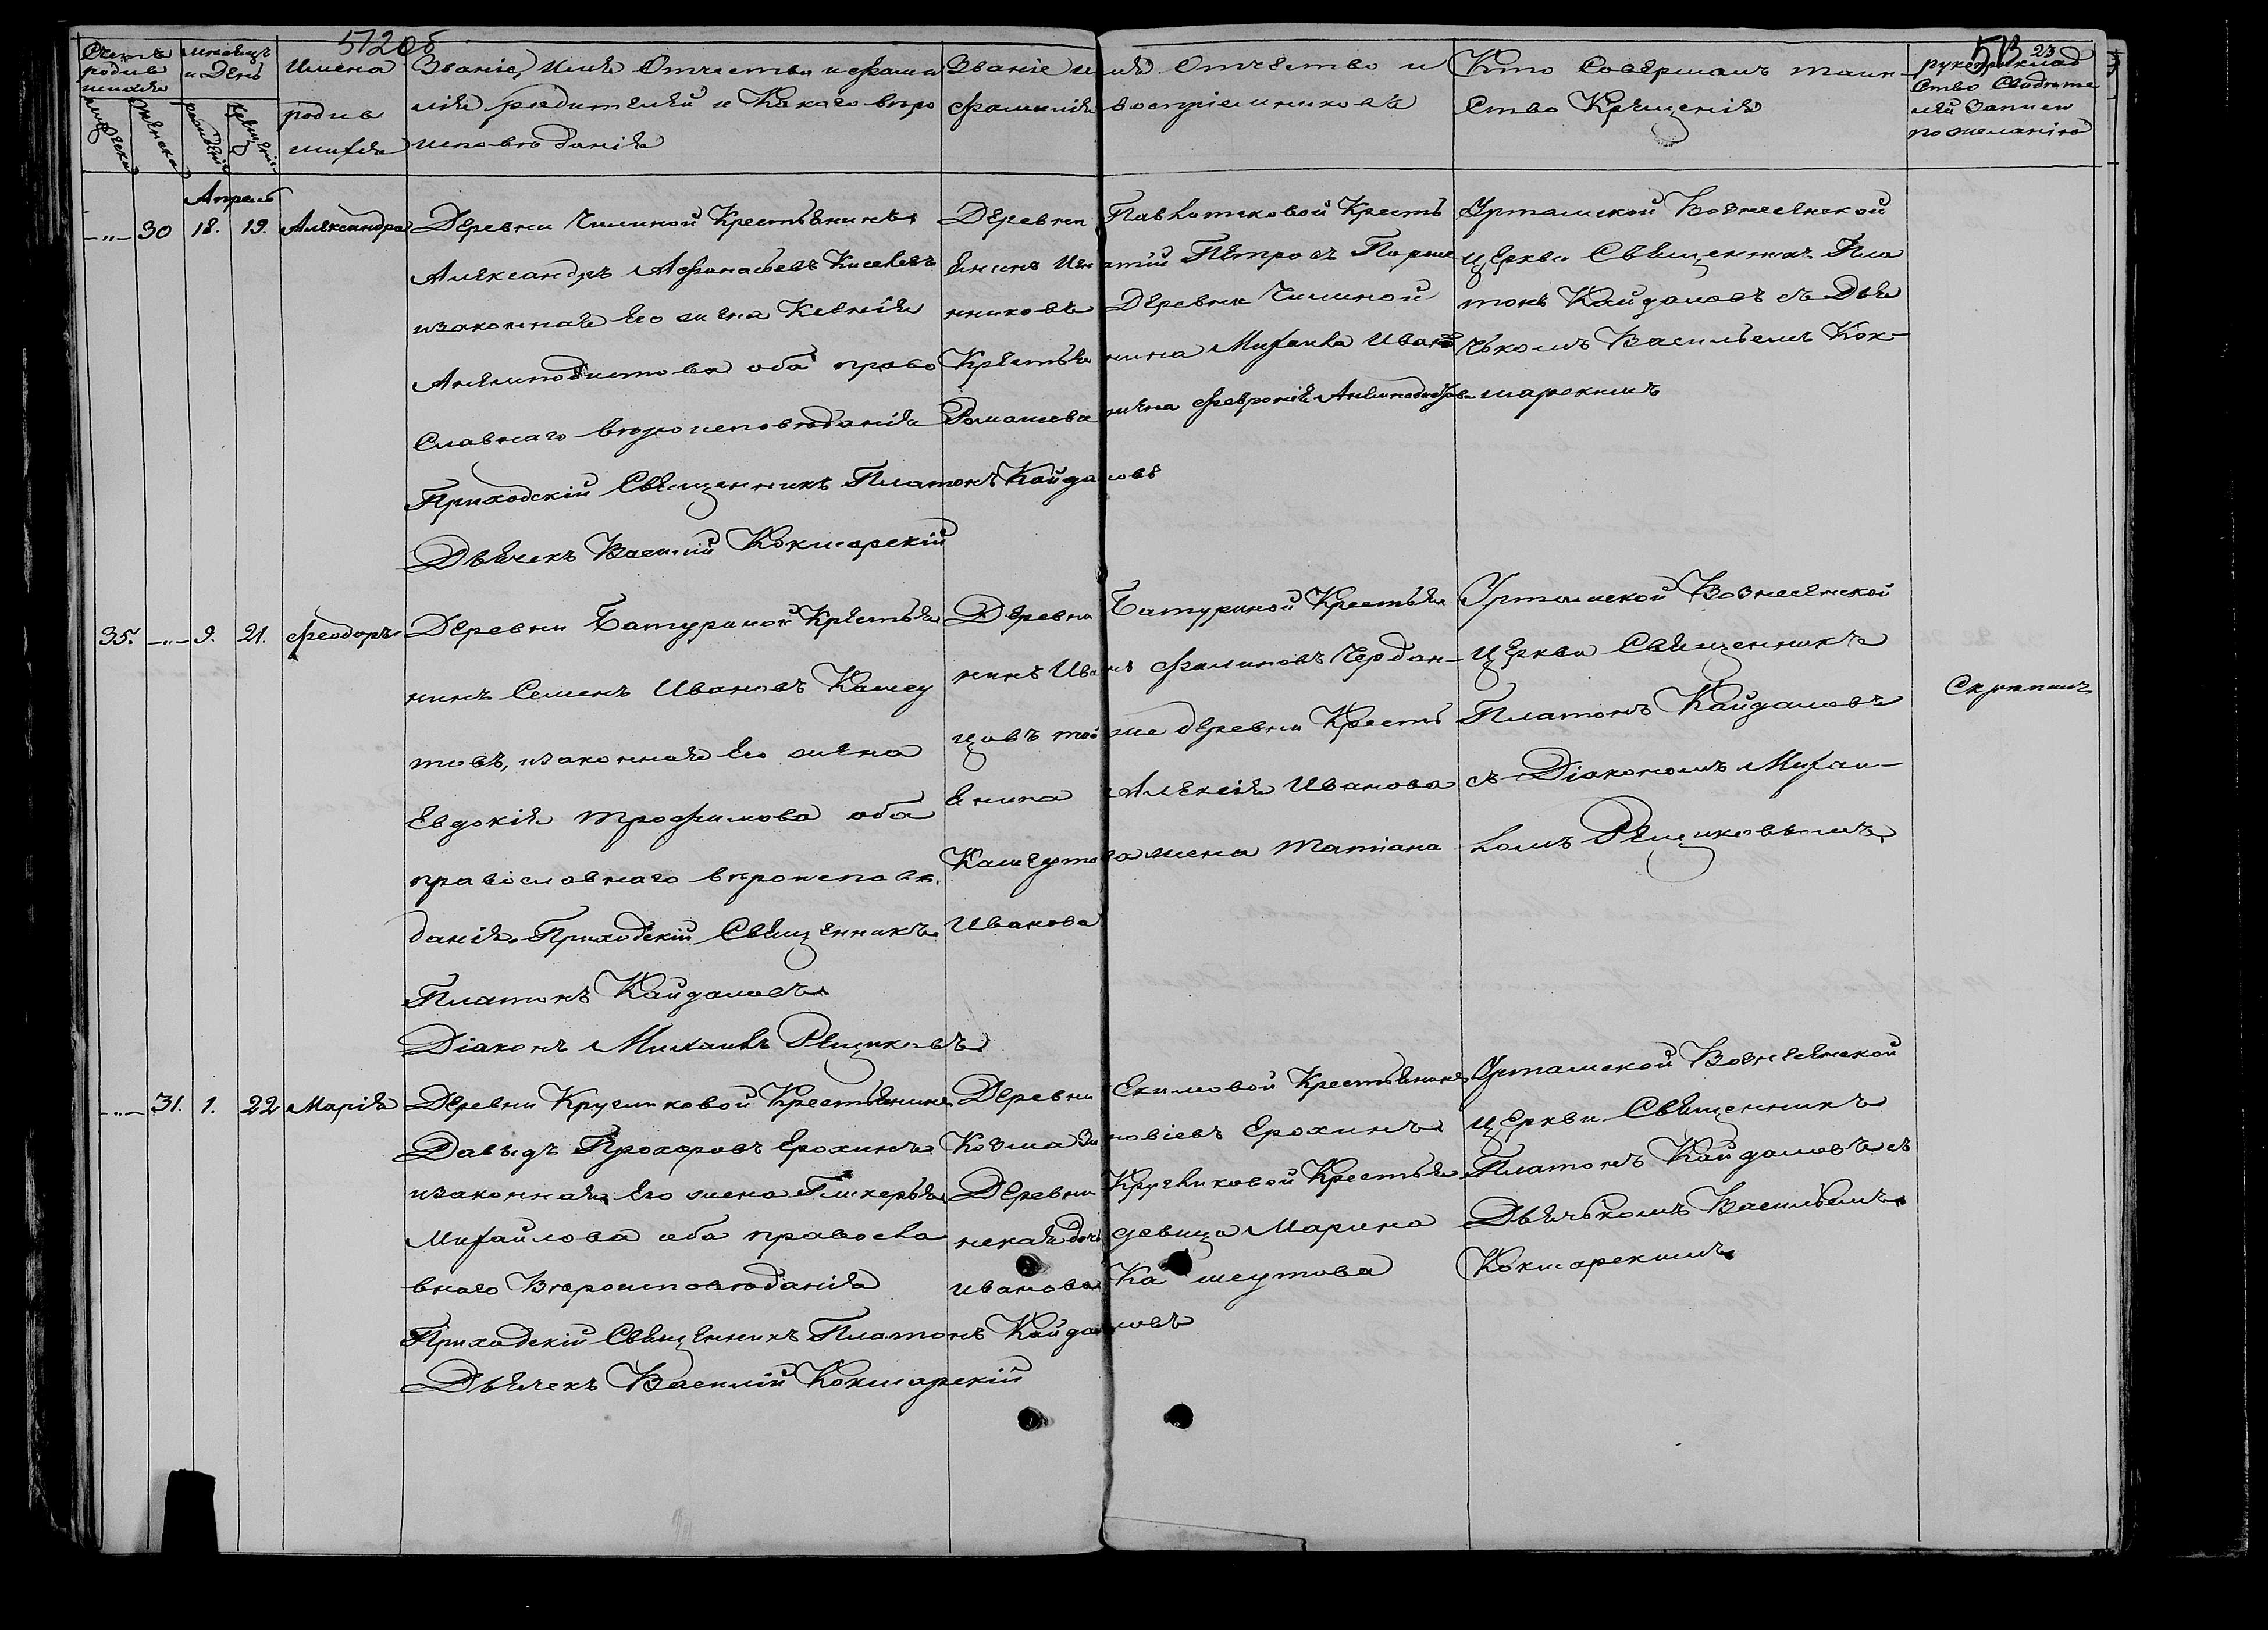 512об
513 23
Счетъ родив шихся
мѣсяцъ и День
Имена родив шихся
Званіе, Имя Отчество и фами лія родителей и Какого вѣро исповѣданія
Званіе имя Отчѣство и фамилія воспріемниковъ
Кто Совѣршалъ таин- Ство Крѣщенія
рукоприклад Ство Свидѣте лей Записи по желанію
Мужеска
Женска
рожденія
Крещенія
Апрель
-"- 30 18. 19. Александра
Деревни Чилиной Крестьянинъ
Александръ Афанасьевъ Киселевъ
изаконная Его жена Ксенія
Анемподистова оба право
Славнаго вѣроисповѣданія
Приходскій Священникъ Платонъ Кайдаловъ
Дьячекъ Василій Кокшарскій
Деревни Павлотиковой Кресть
янинъ Игнатій Пѣтровъ Парше
нниковъ Деревни Чилиной
Крѣстьянина Михаила Иван
Ромашева жена Февронія Анемподистова
Урташской Вознесѣнской
цѣркви Священникъ Пла
тонъ Кайдаловъ съ Дья
чькомъ Васильемъ Кок-
шарскимъ
35. -"- 9. 21. Феодоръ
Деревни Батуриной Крѣстья
нинъ Семенъ Ивановъ Кашеу
товъ, изаконная Его жена
Евдокія трофимова оба
православнаго вѣроисповѣ.
данія. Приходскій Священникъ
Платонъ Кайдаловъ
Діаконъ Михаилъ Рещиковъ
Деревни Батуриной Крестья
нинъ Иванъ Филиповъ Чердан-
цовъ той же деревни Кресть
янина Алексія Иванова
Кашеутова жена татіана
Иванова
Урташской Вознесѣнской
Цѣркви Священникъ
Платонъ Кайдаловъ
съ Діакономъ Михаи-
ломъ Рещиковымъ
Скрѣпилъ
-"- 31. 1. 22 Марія
Деревни Кругликовой Крестьянинъ
Давыдъ Прохоровъ Ерохинъ
изаконная Его жена Гликерья
Михайлова оба правосла
внаго Вѣроисповѣданія
Приходскій Священникъ Платонъ Кайдаловъ
Дьячекъ Василій Кокшарскій
Деревни Екимовой Крестьянинъ
Козма Зиновіевъ Ерохинъ
Деревни Кругликовой Крестья
нская дочь девица Марина
иванова Кашеутова
Урташской Вознесѣнской
цѣркви Священникъ
Платонъ Кайдаловъ съ
Дьячькомъ Васильемъ
Кокшарскимъ